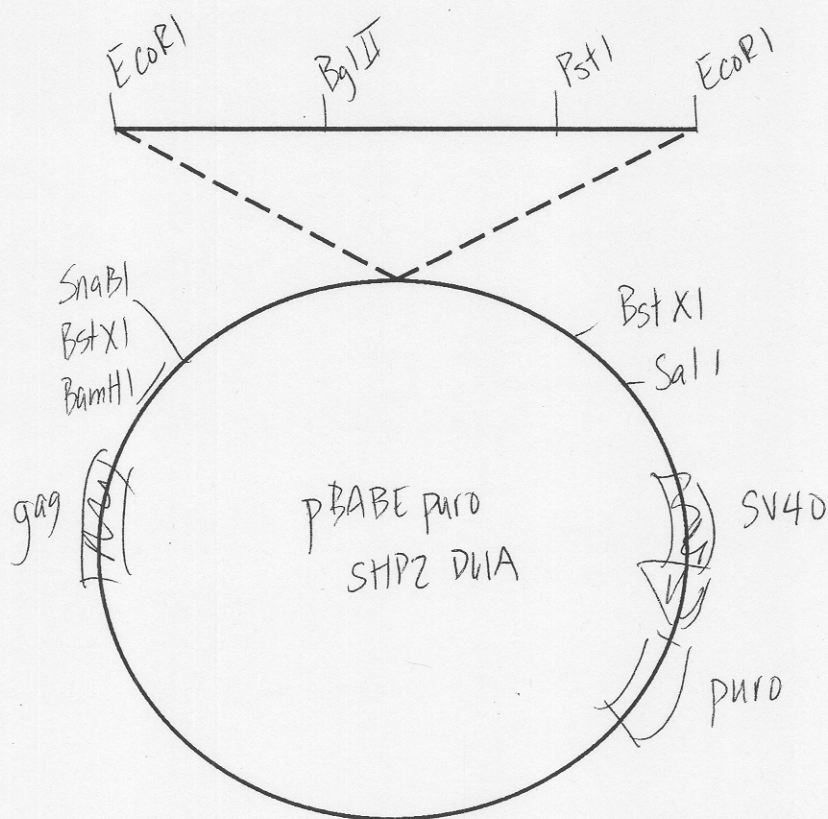 EcoRI
BglII
PstI
EcoRI
SnaBI
BstXI
BamHI
BstXI
SalI
gag
pBABE puro
SHP2 D61A
SV40
puro